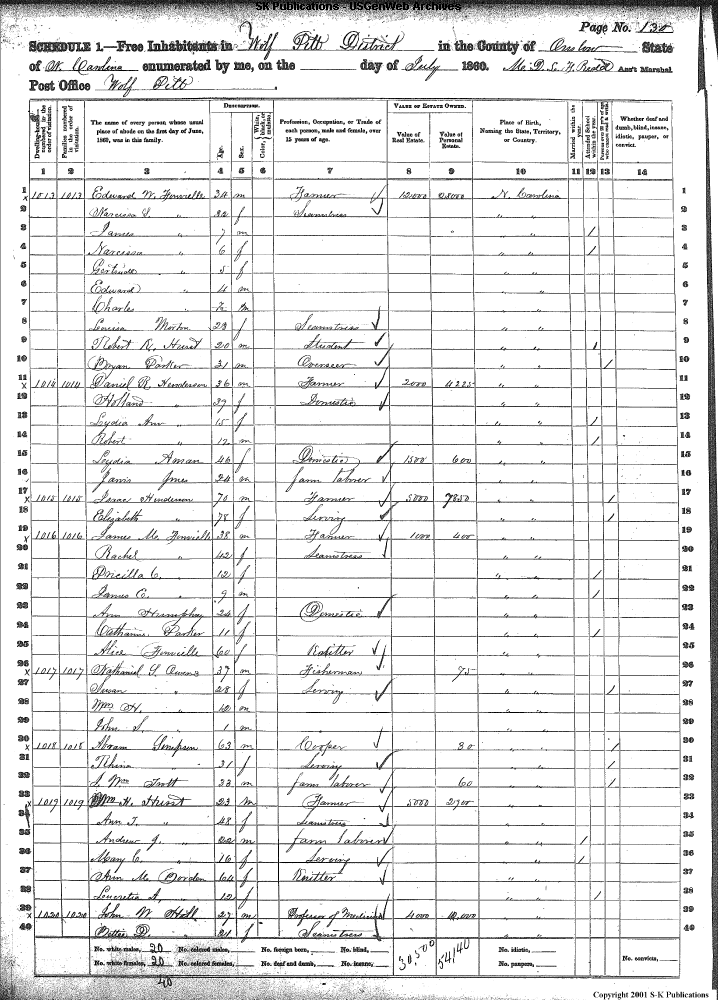 SK Publications - USGenWeb Archives
Page No. 130
SCHEDULE 1.—Free Inhabitants in Wolf Pitt District in the County of Onslow State
of N. Carolina enumerated by me, on the day of July 1860. Ass't Marshal
Post Office Wolf Pitt.
Dwelling-houses numbered in the order of visitation.
Families numbered in the order of visitation.
The name of every person whose usual place of abode on the first day of June, 1860, was in this family.
DESCRIPTION.
Age.
Sex.
Color, White, black, or mulatto.
Profession, Occupation, or Trade of each person, male and female, over 15 years of age.
VALUE OF ESTATE OWNED.
Value of Real Estate.
Value of Personal Estate.
Place of Birth, Naming the State, Territory, or Country.
Married within the year.
Attended School within the year.
Whether deaf and dumb, blind, insane, idiotic, pauper, or convict.
1 2 3 4 5 6 7 8 9 10 11 12 13 14
1 1013 1013 Edward W. Fonvielle 34 m Farmer 12000 N. Carolina 1
2 Narcissa S. " 32 f Seamstress " " 2
3 James " 7 m " " / 3
4 Narcissa " 6 f " " / 4
5 Gertrude " 5 f " " 5
6 Edward " 4 m " " 6
7 Charles " 2 m " " 7
8 Louisa Morton 23 f Seamstress " " 8
9 Robert R. Hurst 20 m Student " " / 9
10 Bryan Parker 31 m Overseer " " / 10
11 1014 1014 Daniel R. Henderson 36 m Farmer 2000 4225 " " 11
12 Holland " 39 f Domestic " " 12
13 Lydia Ann " 15 f " " / 13
14 Robert " 12 m " " / 14
15 Lydia Aman 46 f Domestic 1500 600 " " 15
16 Jarvis Jones 24 m farm laborer " " 16
17 1015 1015 Isaac Henderson 70 m Farmer 5000 7850 " " / 17
18 Elizabeth " 78 f Serving " " / 18
19 1016 1016 James M. Fonvielle 38 m Farmer 1000 400 " " 19
20 Rachel " 42 f Seamstress " " 20
21 Pricilla C. " 12 f " " / 21
22 James C. " 9 m " " / 22
23 Ann Humphrey 24 f Domestic " " 23
24 Catharine Parker 11 f " " / 24
25 Alice Fonvielle 60 f Knitter " " 25
26 1017 1017 Nathaniel S. Owens 37 m Fisherman 75 " " 26
27 Susan " 28 f Serving " " / 27
28 Wm H. " 12 m " " 28
29 John S. " 1 m " " 29
30 1018 1018 Abram Simpson 63 m Cooper 30 " " / 30
31 31 f Serving " " / 31
32 Wm Trott 33 m farm laborer 60 " " / 32
33 1019 1019 Wm H. Hurst 23 m Farmer 5000 " " 33
34 Ann T. " 48 f Seamstress " " 34
35 Andrew J. " 22 m farm laborer " " / 35
36 Mary C. " 16 f Serving " " / 36
37 Ann M. Borden 64 f Knitter " " 37
38 Lucretia A. " 12 f " " / 38
39 1020 1020 John W. Hill 27 m Professor of Medicine 4000 " " 39
40 D. " 21 f Seamstress " " 40
No. white males, 20 No. colored males, No. foreign born, No. blind, 30,500 54140 No. idiotic, No. convicts,
No. white females, 20 No. colored females, No. deaf and dumb, No. insane, No. paupers,
40
Copyright 2001 S-K Publications